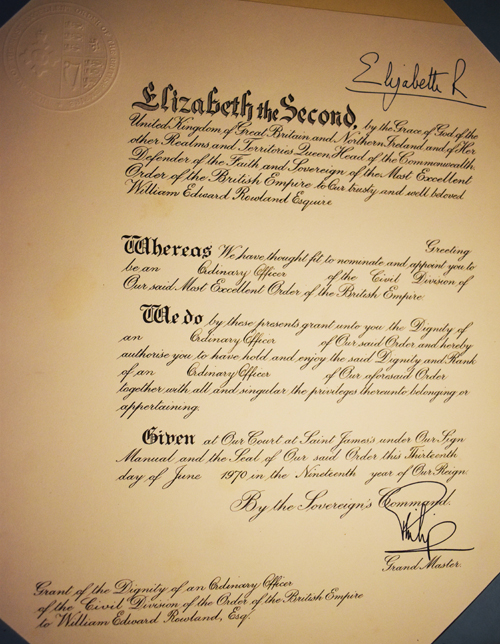 Elizabeth R
Elizabeth the Second, by the Grace of God of the
United Kingdom of Great Britain and Northern Ireland and of Her
other Realms and Territories Queen, Head of the Commonwealth,
Defender of the Faith and Sovereign of the Most Excellent
Order of the British Empire to Our trusty and well beloved
William Edward Rowland Esquire
Greeting
Whereas We have thought fit to nominate and appoint you to
be an Ordinary Officer of the Civil Division of
Our said Most Excellent Order of the British Empire
We do by these presents grant unto you the Dignity of
an Ordinary Officer of Our said Order and hereby
authorise you to have hold and enjoy the said Dignity and Rank
of an Ordinary Officer of Our aforesaid Order
together with all and singular the privileges thereunto belonging or
appertaining.
Given at Our Court at Saint James's under Our Sign
Manual and the Seal of Our said Order this Thirteenth
day of June 1970 in the Nineteenth year of Our Reign.
By the Sovereign's Command.
Philip
Grand Master.
Grant of the Dignity of an Ordinary Officer
of the Civil Division of the Order of the British Empire
to William Edward Rowland, Esq.